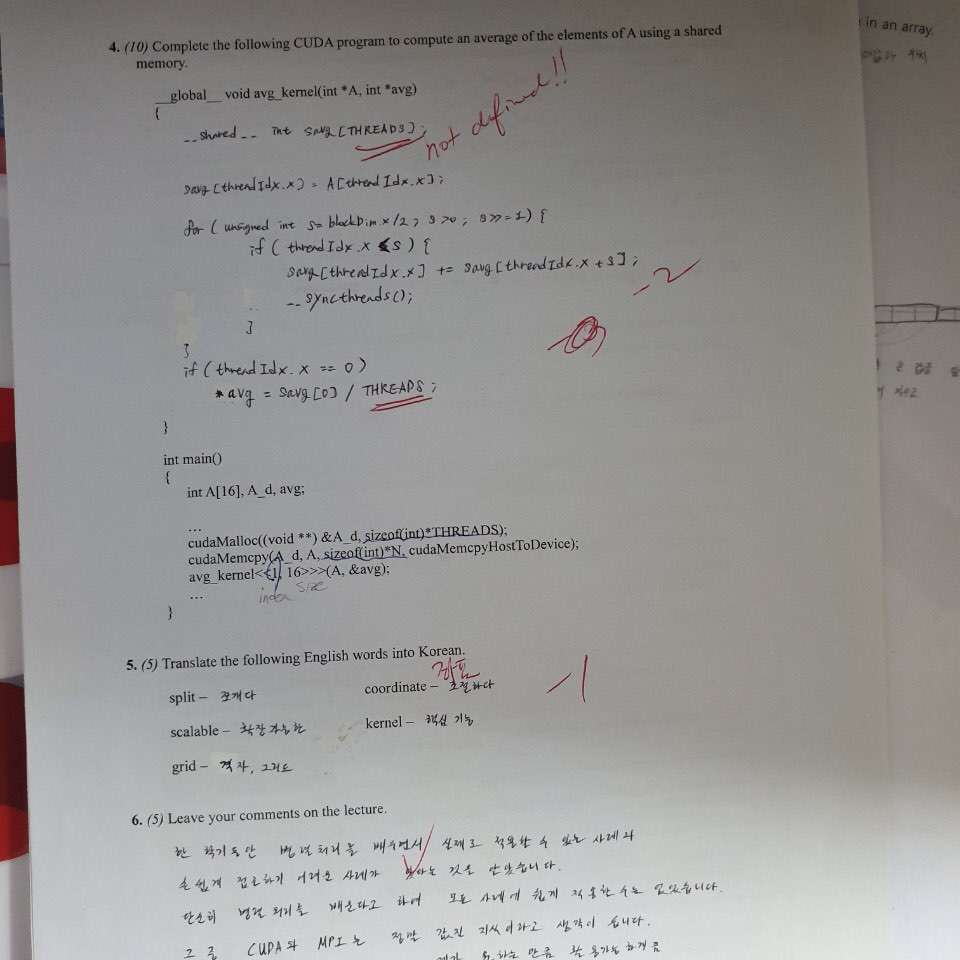 4. (10) Complete the following CUDA program to compute an average of the elements of A using a shared
memory.
in an array.
__global__ void avg_kernel(int *A, int *avg)
{
__shared__ int savg[THREADS];
not defined!!
savg[threadIdx.x] = A[threadIdx.x];
for ( unsigned int s=blockDim.x/2; s>0; s>>=1) {
if ( threadIdx.x < s ) {
savg[threadIdx.x] += savg[threadIdx.x + s];
-2
__syncthreads();
}
}
if (threadIdx.x == 0)
*avg = savg[0] / THREADS;
}
int main()
{
int A[16], A_d, avg;
...
cudaMalloc((void **) &A_d, sizeof(int)*THREADS);
cudaMemcpy(A_d, A, sizeof(int)*N, cudaMemcpyHostToDevice);
avg_kernel<<1, 16>>>(A, &avg);
...
index size
}
5. (5) Translate the following English words into Korean.
좌표
split – 쪼개다
coordinate – 조절하다
-1
scalable – 확장가능한
kernel – 핵심 기능
grid – 격자, 그리드
6. (5) Leave your comments on the lecture.
한 학기동안 병렬처리를 배우면서 실제로 적용할 수 있는 사례와
손쉽게 접근하기 어려운 사례가 많다는 것을 알았습니다.
단순히 병렬 처리를 배운다고 하여 모든 사례에 쉽게 적용할 수는 없었습니다.
그 중 CUDA와 MPI는 정말 값진 지식이라고 생각이 됩니다.